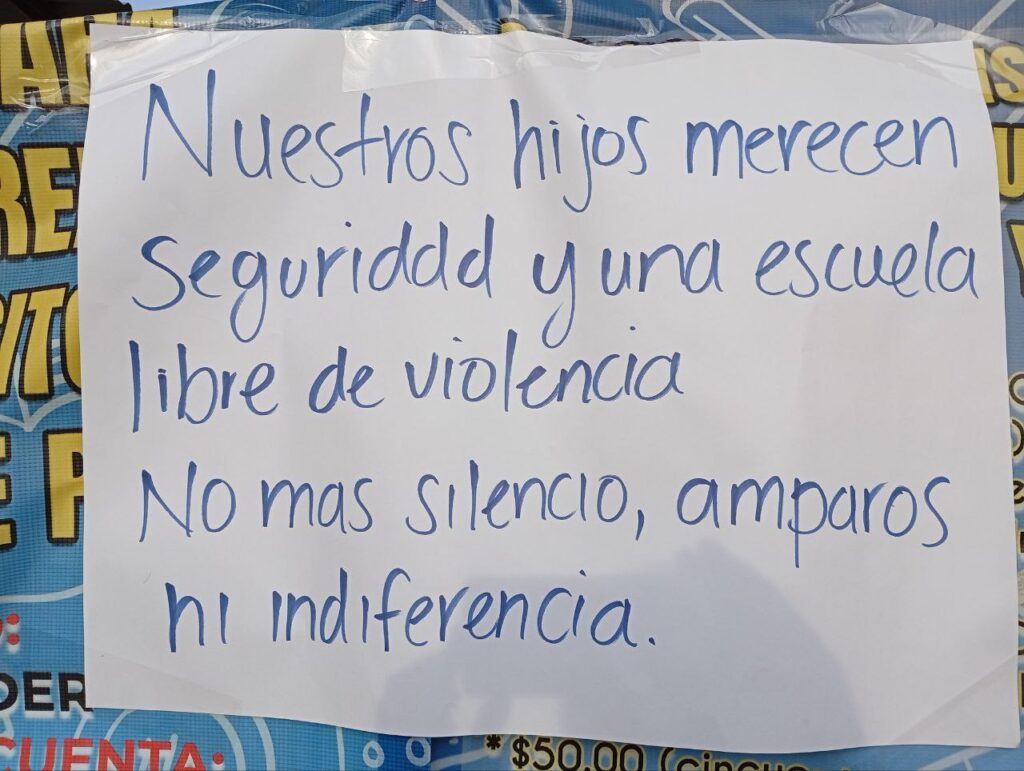 Nuestros hijos merecen
seguriddd y una escuela
libre de violencia
No mas silencio, amparos
ni indiferencia.
CUENTA:
* $50.00